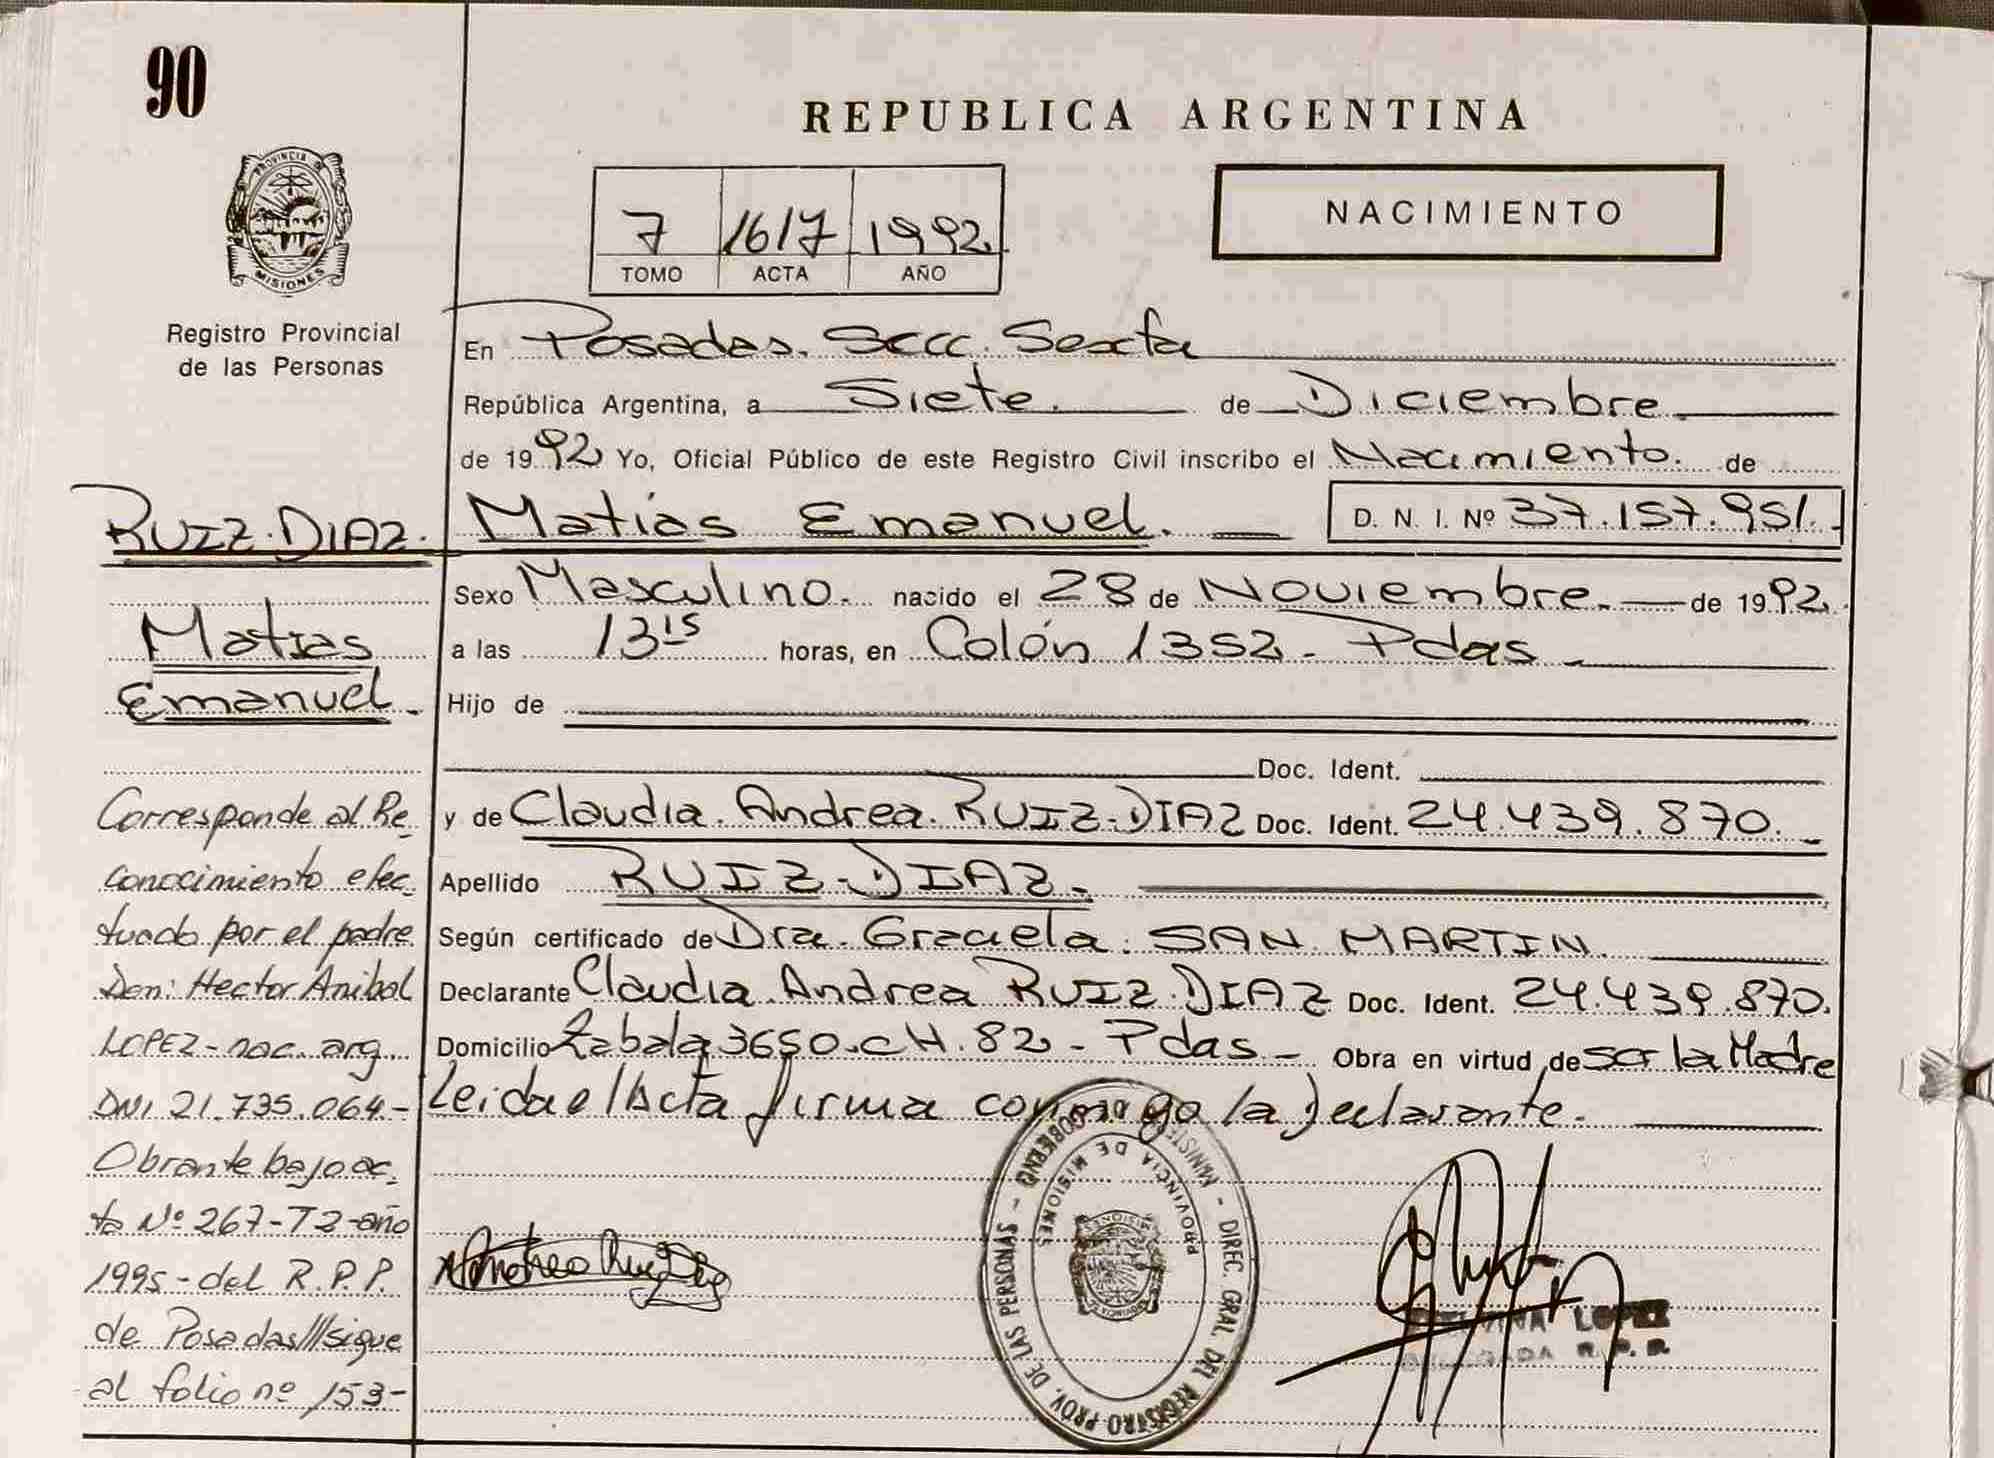 90
REPUBLICA ARGENTINA
PROVINCIA DE
MISIONES
Registro Provincial
de las Personas
7 1617 1992
TOMO ACTA AÑO
NACIMIENTO
En Posadas. Secc. Sexta
República Argentina, a Siete. de Diciembre.
de 1992 Yo, Oficial Público de este Registro Civil inscribo el Nacimiento. de
RUIZ.DIAZ. Matías Emanuel. D. N. I. Nº 37.157.951.
Sexo Masculino. nacido el 28 de Noviembre. de 1992.
Matias
a las 13 15 horas, en Colón 1352 - Pdas -
Emanuel.
Hijo de
Doc. Ident.
y de Claudia. Andrea. RUIZ.DIAZ Doc. Ident. 24.439.870.
Apellido RUIZ.DIAZ.
Según certificado de Dra. Graciela. SAN MARTIN.
Declarante Claudia Andrea RUIZ.DIAZ Doc. Ident. 24.439.870.
Domicilio Zabala 3650.cH.82 - Pdas - Obra en virtud de ser la Madre
Leida el Acta firma conmigo la Declarante.
Corresponde al Re
conocimiento efec
tuado por el padre
Don: Hector Anibal
LOPEZ - nac. arg.
DNI 21.735.064-
Obrante bajo ac.
ta Nº 267-T2-año
1995-del R.P.P.
de Posadas///sigue
al folio nº 153-
Andrea Ruiz Diaz
MINISTERIO GOBIERNO - DIREC. GRAL. DEL REGISTRO PROV. DE LAS PERSONAS -
PROVINCIA DE MISIONES
LOPEZ
R. P. P.